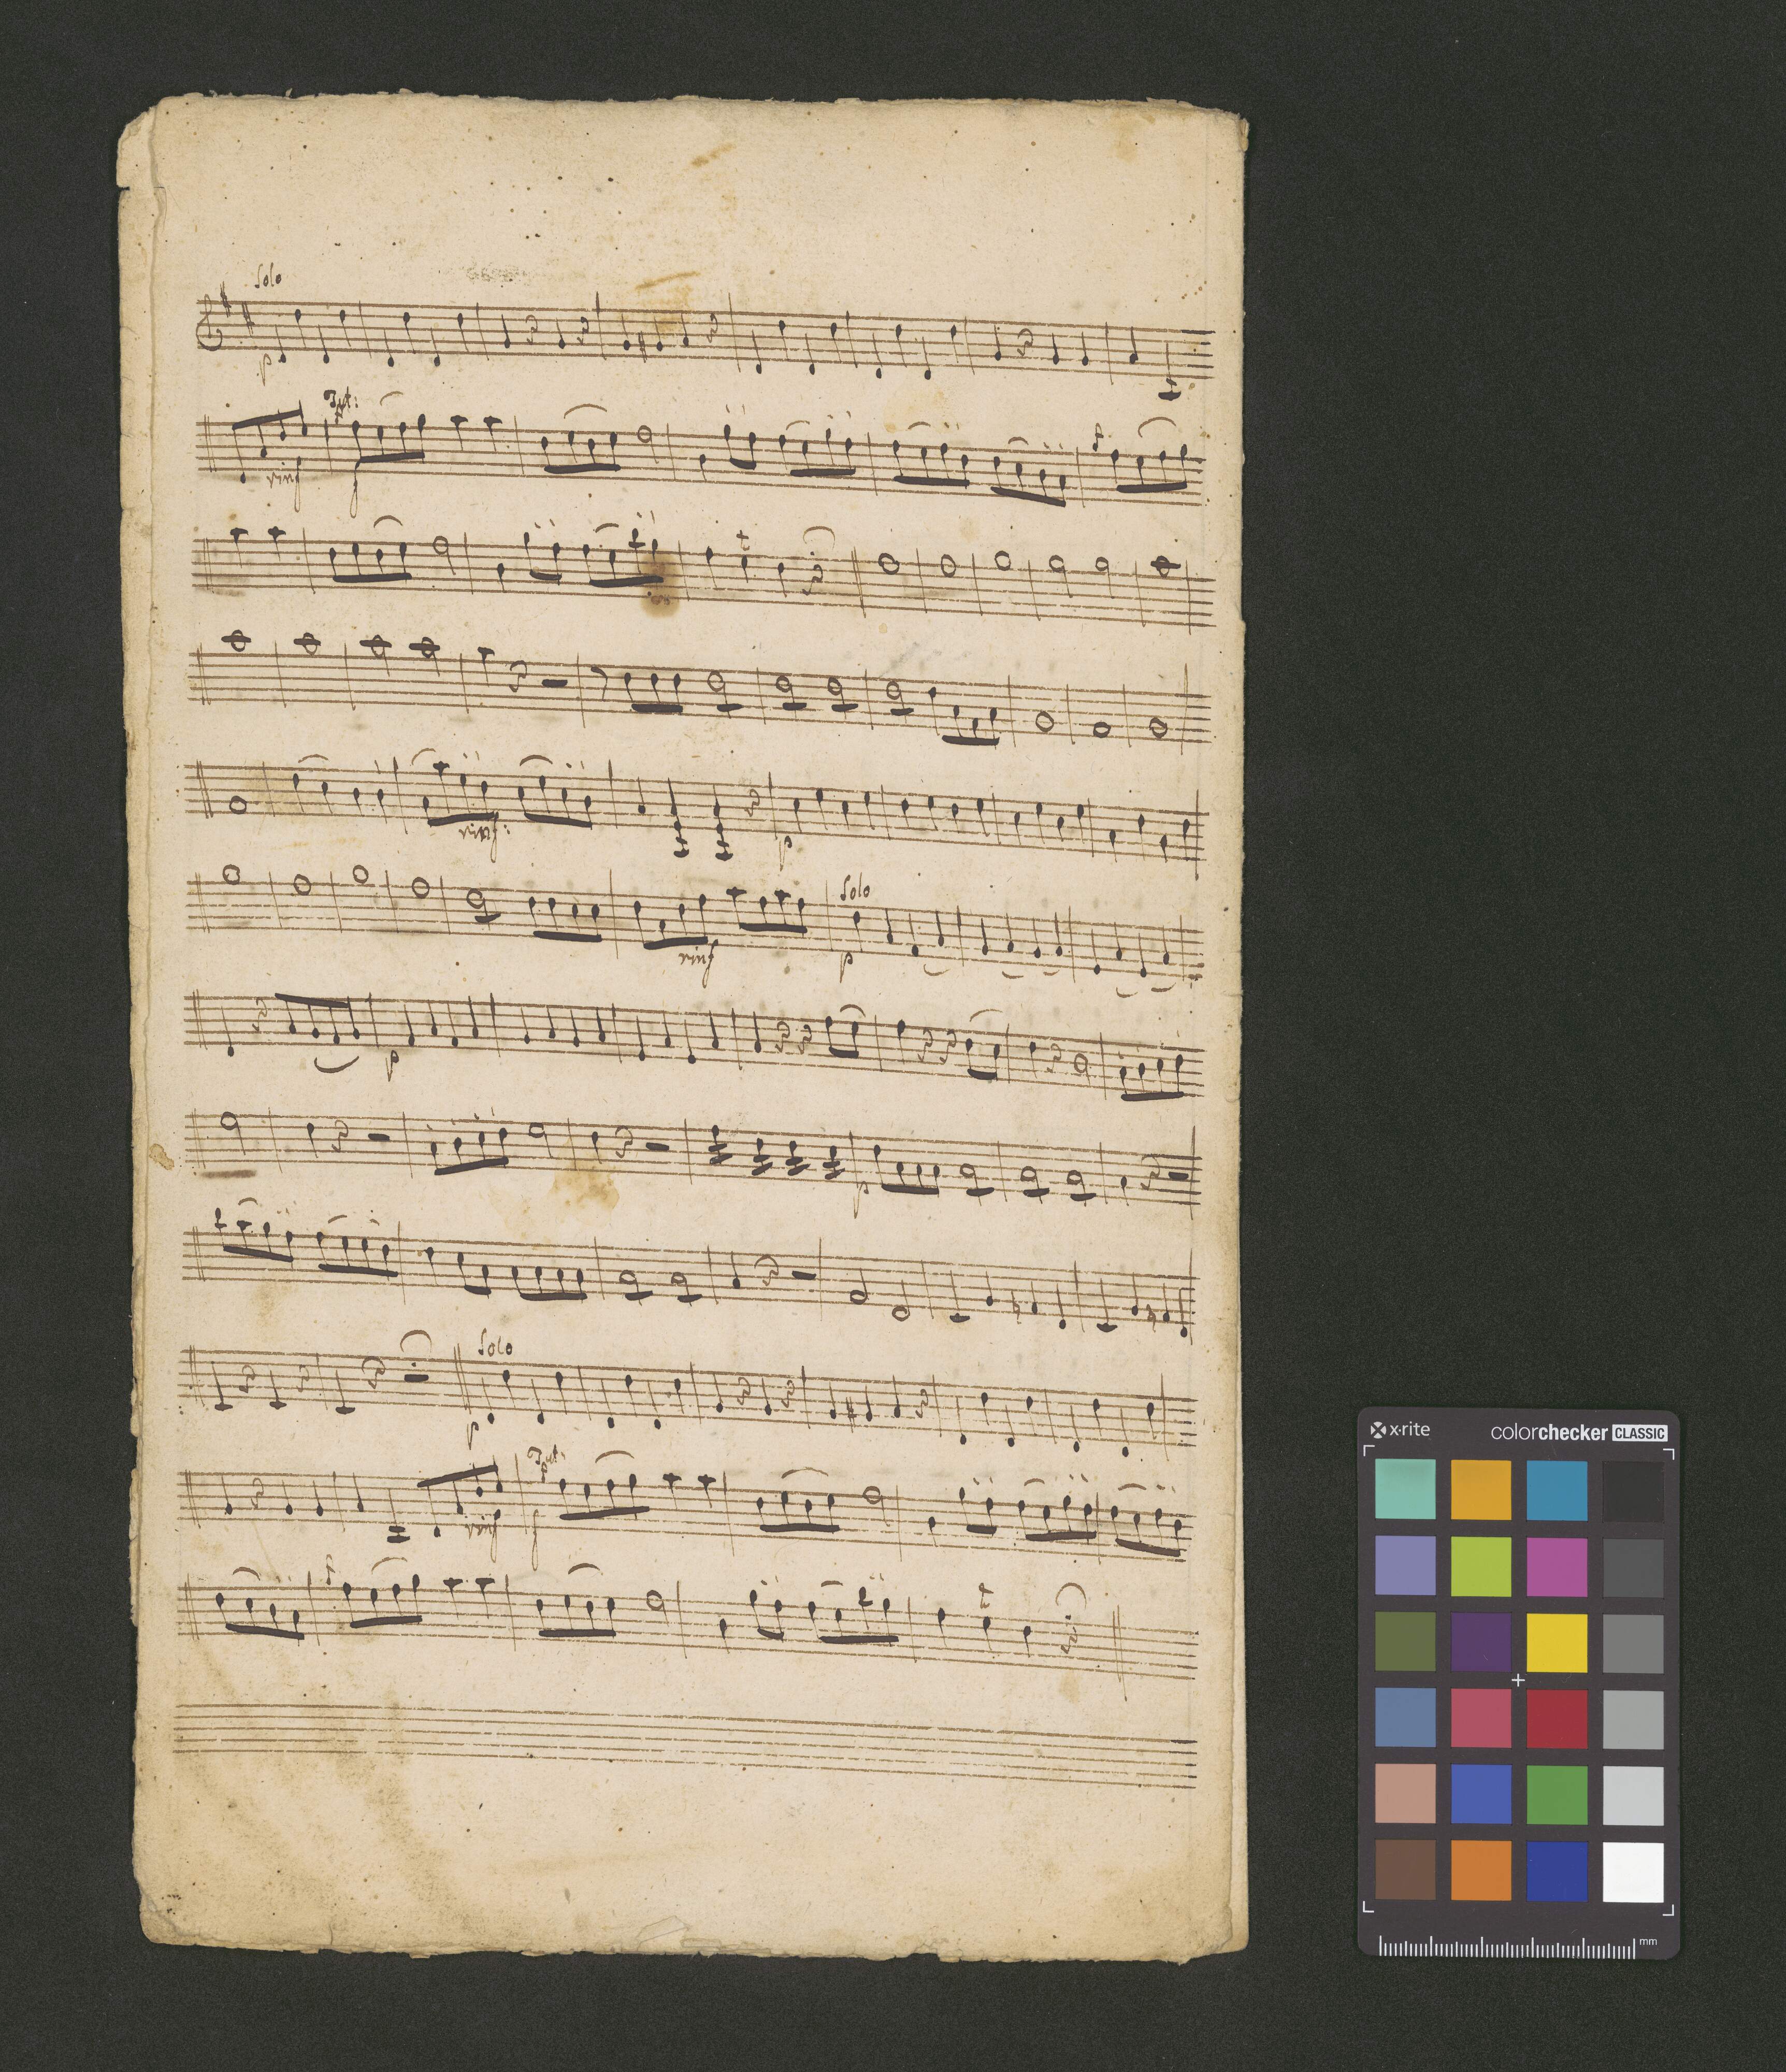 Solo
p
Tut:
rinf f
rinf:
p
Solo
rinf p
p
p
Solo
p
Tut:
rinf f
x-rite colorchecker CLASSIC
mm